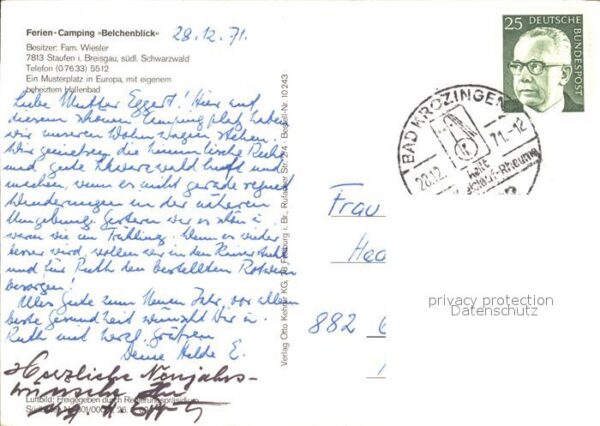 Ferien-Camping »Belchenblick«
28.12.71.
Besitzer: Fam. Wiesler
7813 Staufen i. Breisgau, südl. Schwarzwald
Telefon (07633) 5512
Ein Musterplatz in Europa, mit eigenem
beheiztem Hallenbad
Liebe Mutter Eggert! Hier auf
diesem schönen Campingplatz haben
wir unseren Wohnwagen stehen.
Wir genießen die himmlische Ruhe
und gute Schwarzwaldluft und
machen, wenn es nicht gerade regnet
Wanderungen in der näheren
Umgebung. Gestern war es schön
warm wie im Frühling. Wenn es wieder
besser wird, wollen wir in den
und für Ruth den bestellten Rotwein
besorgen!
Alles Gute zum Neuen Jahr, vor allem
beste Gesundheit wünscht Dir u.
Ruth mit herzl. Grüßen
Deine Hilde E.
Herzliche Neujahrs-
wünsche
Luftbild: Freigegeben durch Regierungspräsidium
Verlag Otto Kehrer KG, 78 Freiburg i. Br., Rufacher Str. 2/4 · Bestell-Nr. 10 243
25 DEUTSCHE
BUNDESPOST
BAD KROZINGEN
28.12. 71.-12
heilt
Kreislauf-Rheuma
Frau
882
privacy protection
Datenschutz